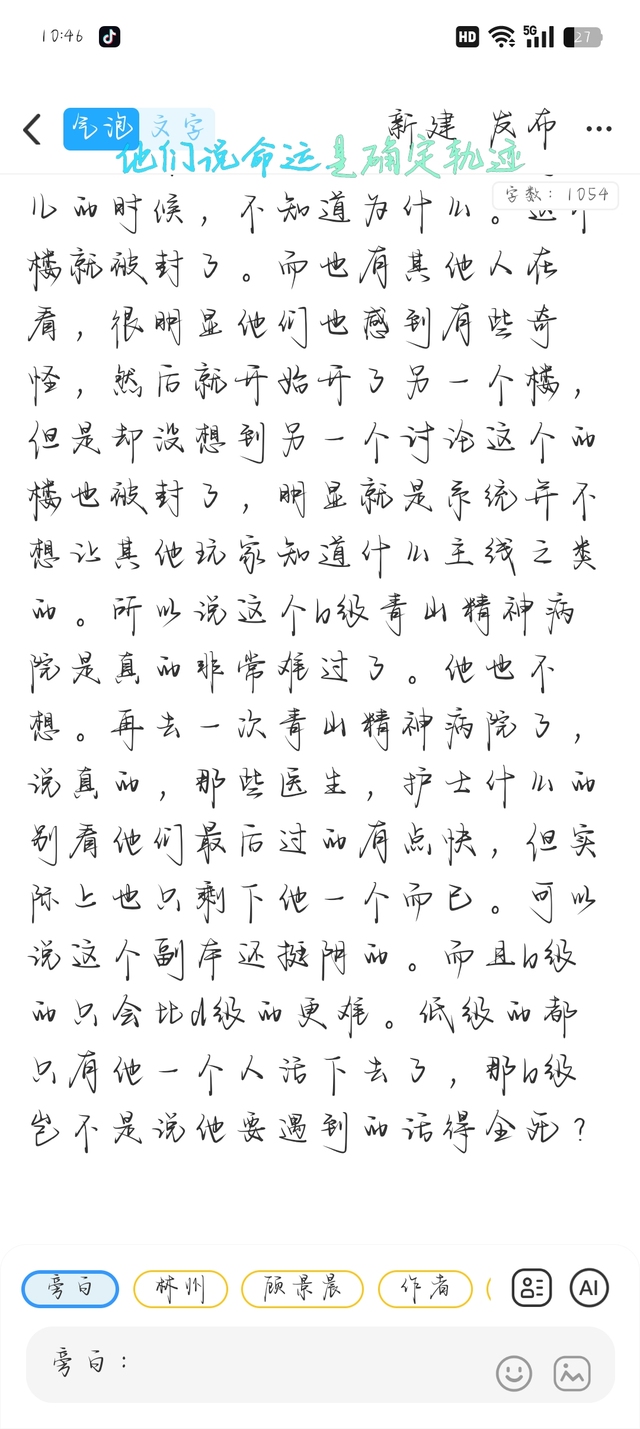 10:46
HD 5G 27
气泡 文字 新建 发布
他们说命运是确定轨迹
字数：1054
儿的时候，不知道为什么。这个
楼就被封了。而也有其他人在
看，很明显他们也感到有些奇
怪，然后就开始开了另一个楼，
但是却没想到另一个讨论这个的
楼也被封了，明显就是系统并不
想让其他玩家知道什么主线之类
的。所以说这个b级青山精神病
院是真的非常难过了。他也不
想。再去一次青山精神病院了，
说真的，那些医生，护士什么的
别看他们最后过的有点快，但实
际上也只剩下他一个而已。可以
说这个副本还挺阴的。而且b级
的只会比d级的更难。低级的都
只有他一个人活下去了，那b级
岂不是说他要遇到的话得全死？
旁白 林州 顾景晨 作者 AI
旁白：